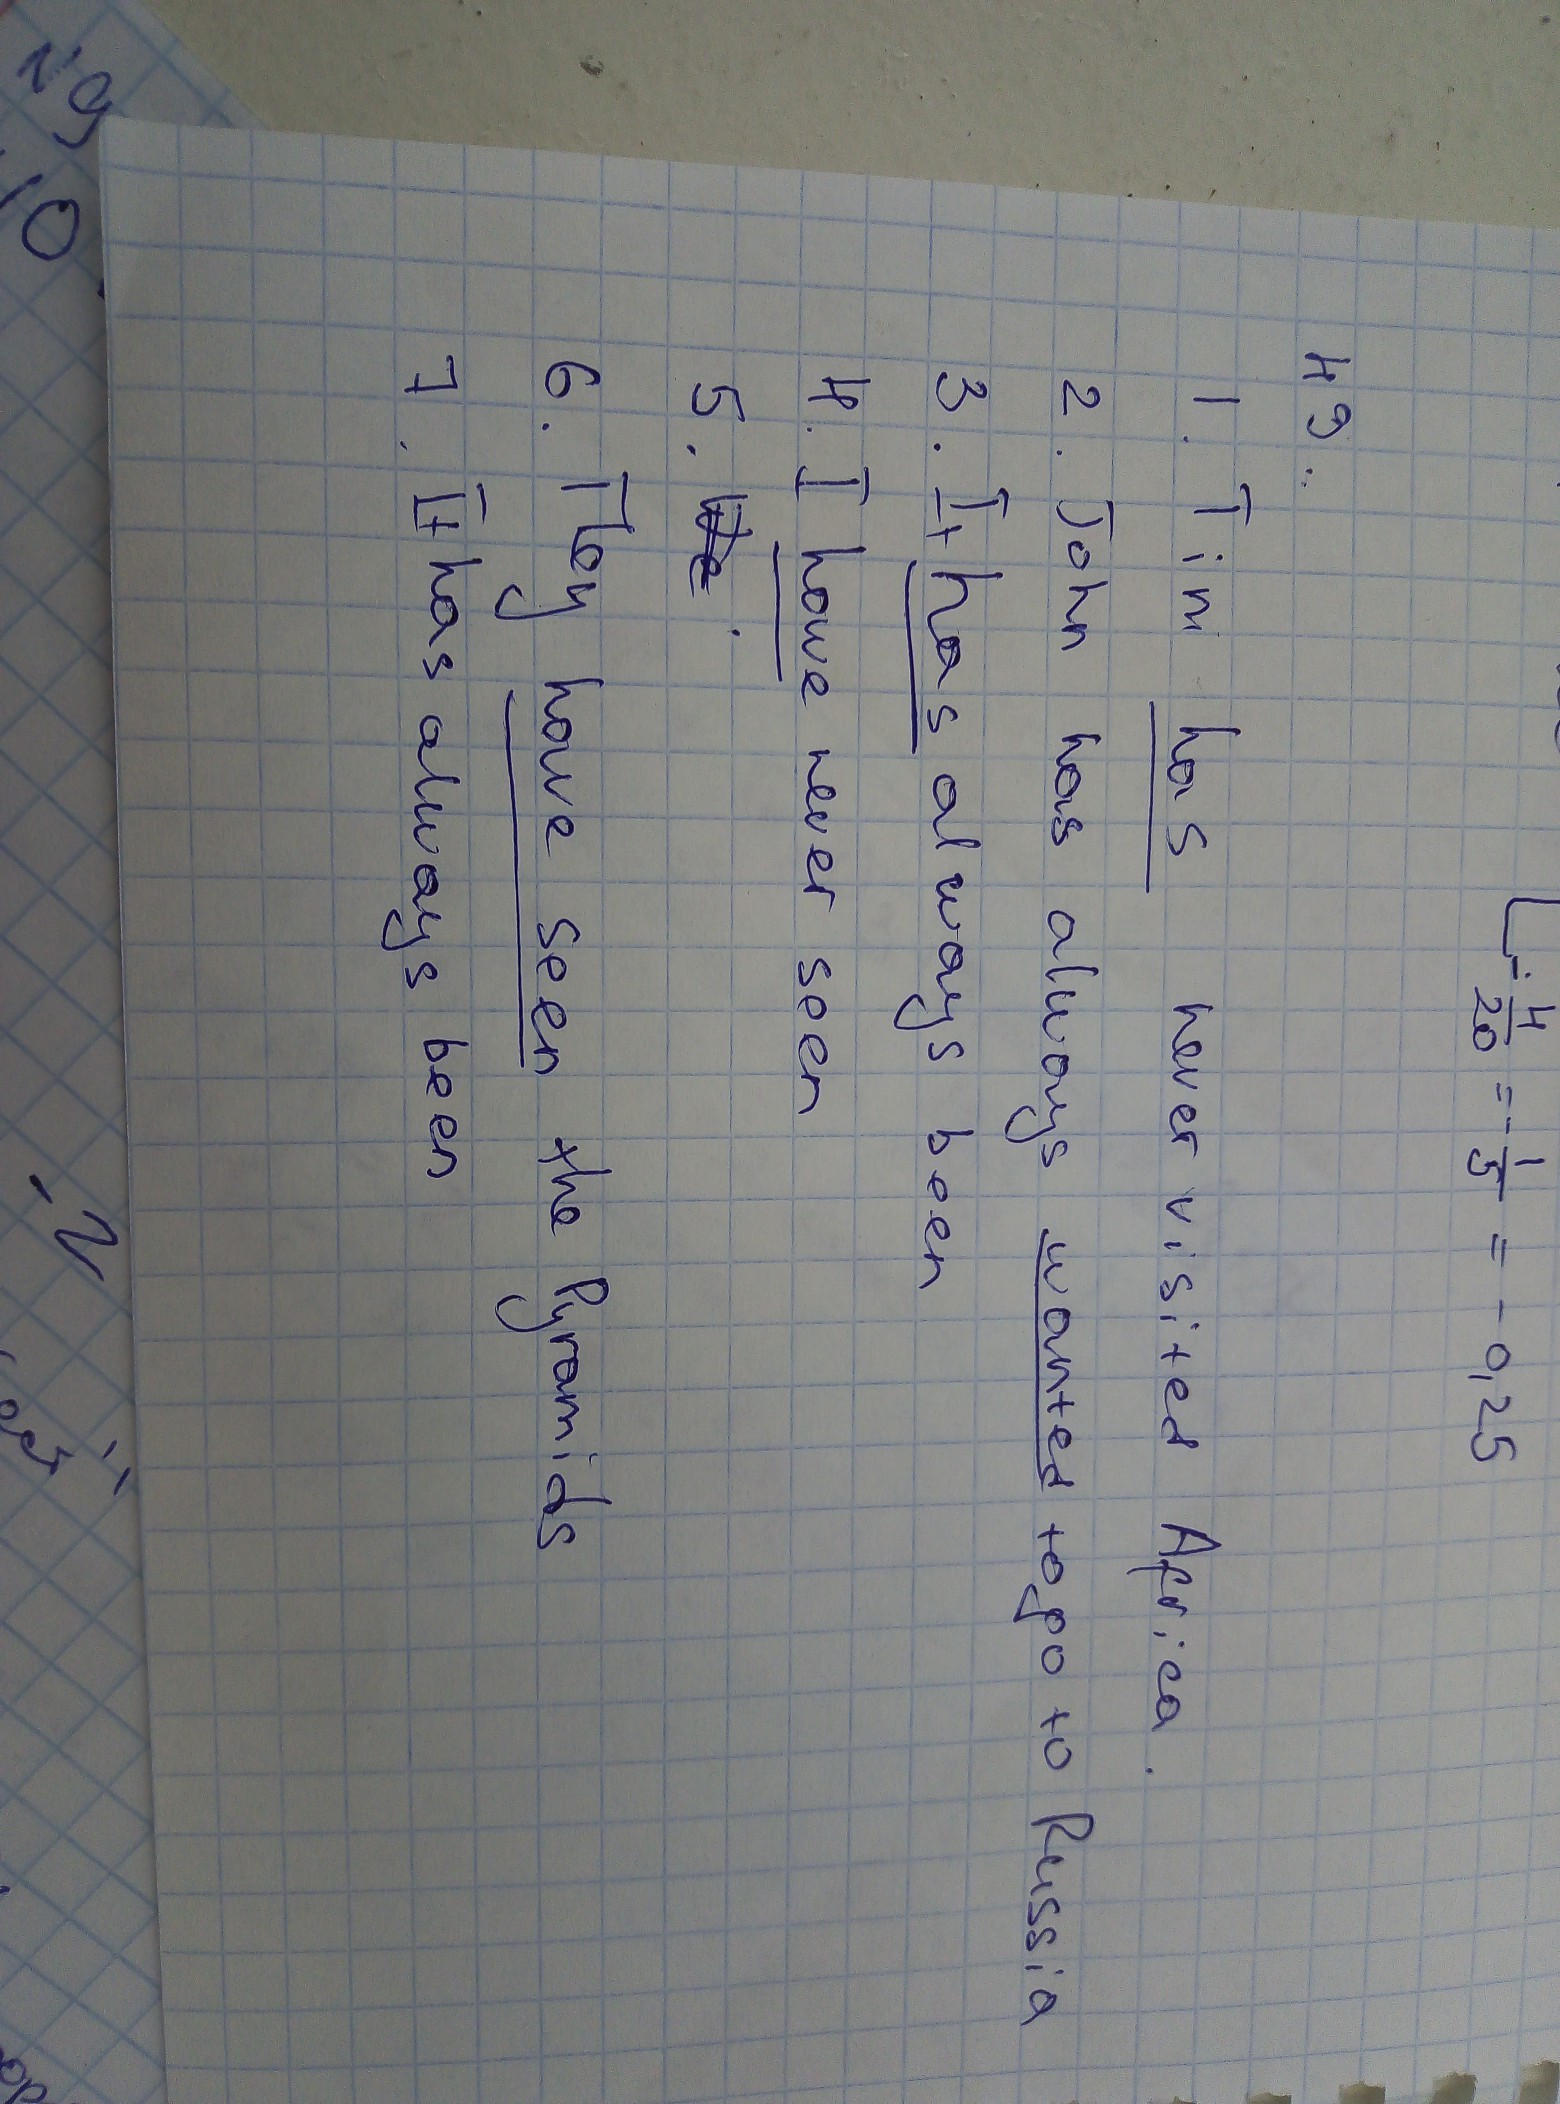 - 4/20 = - 1/5 = - 0,25
49..
1. Tim has never visited Africa.
2. John has always wanted to go to Russia
3. It has always been
4. I have never seen
5.
6. They have seen the Pyramids
7. It has always been
N9
10